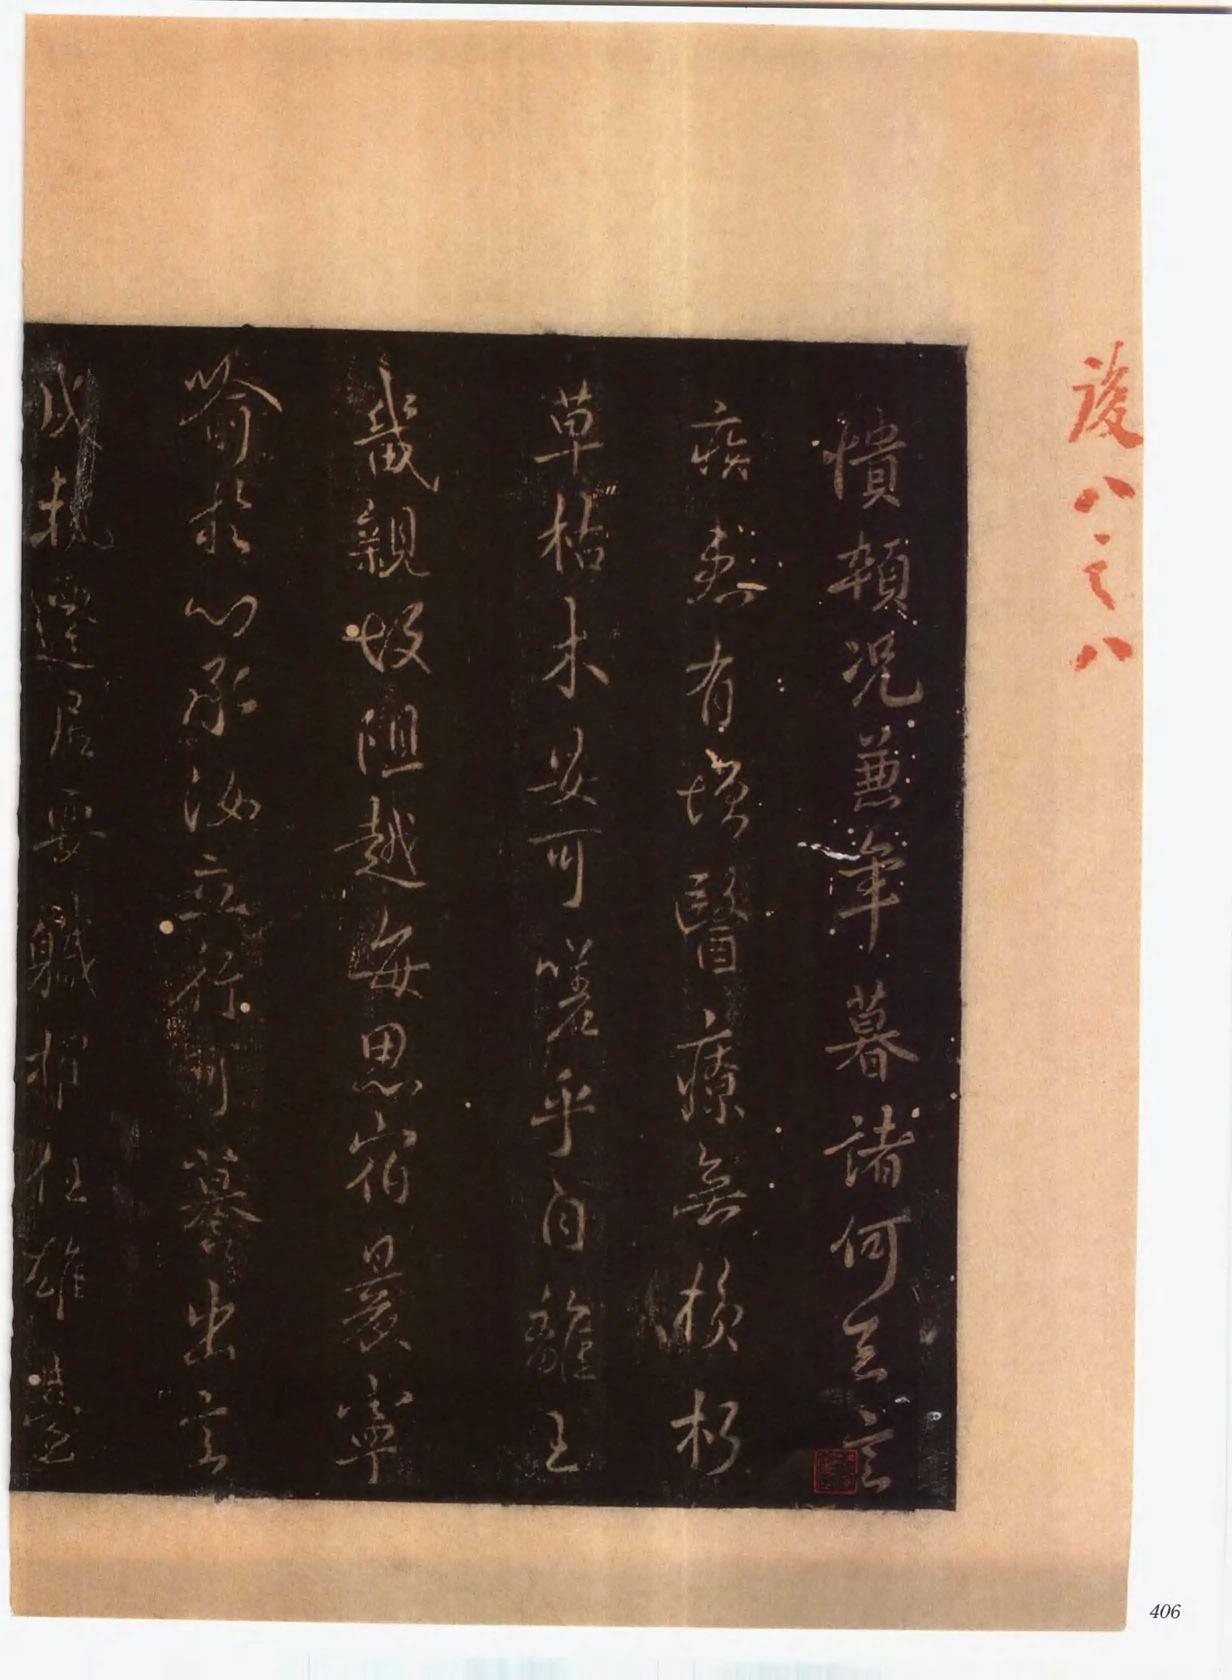 後八之八
憒頓況兼年暮諸何足言
疾患有增醫療無損朽
草枯木安可嗟乎自離王
畿親故阻越每思宿晨寧
喻於心承汝立行可慕出言
成軌遷居要職相任雄
406